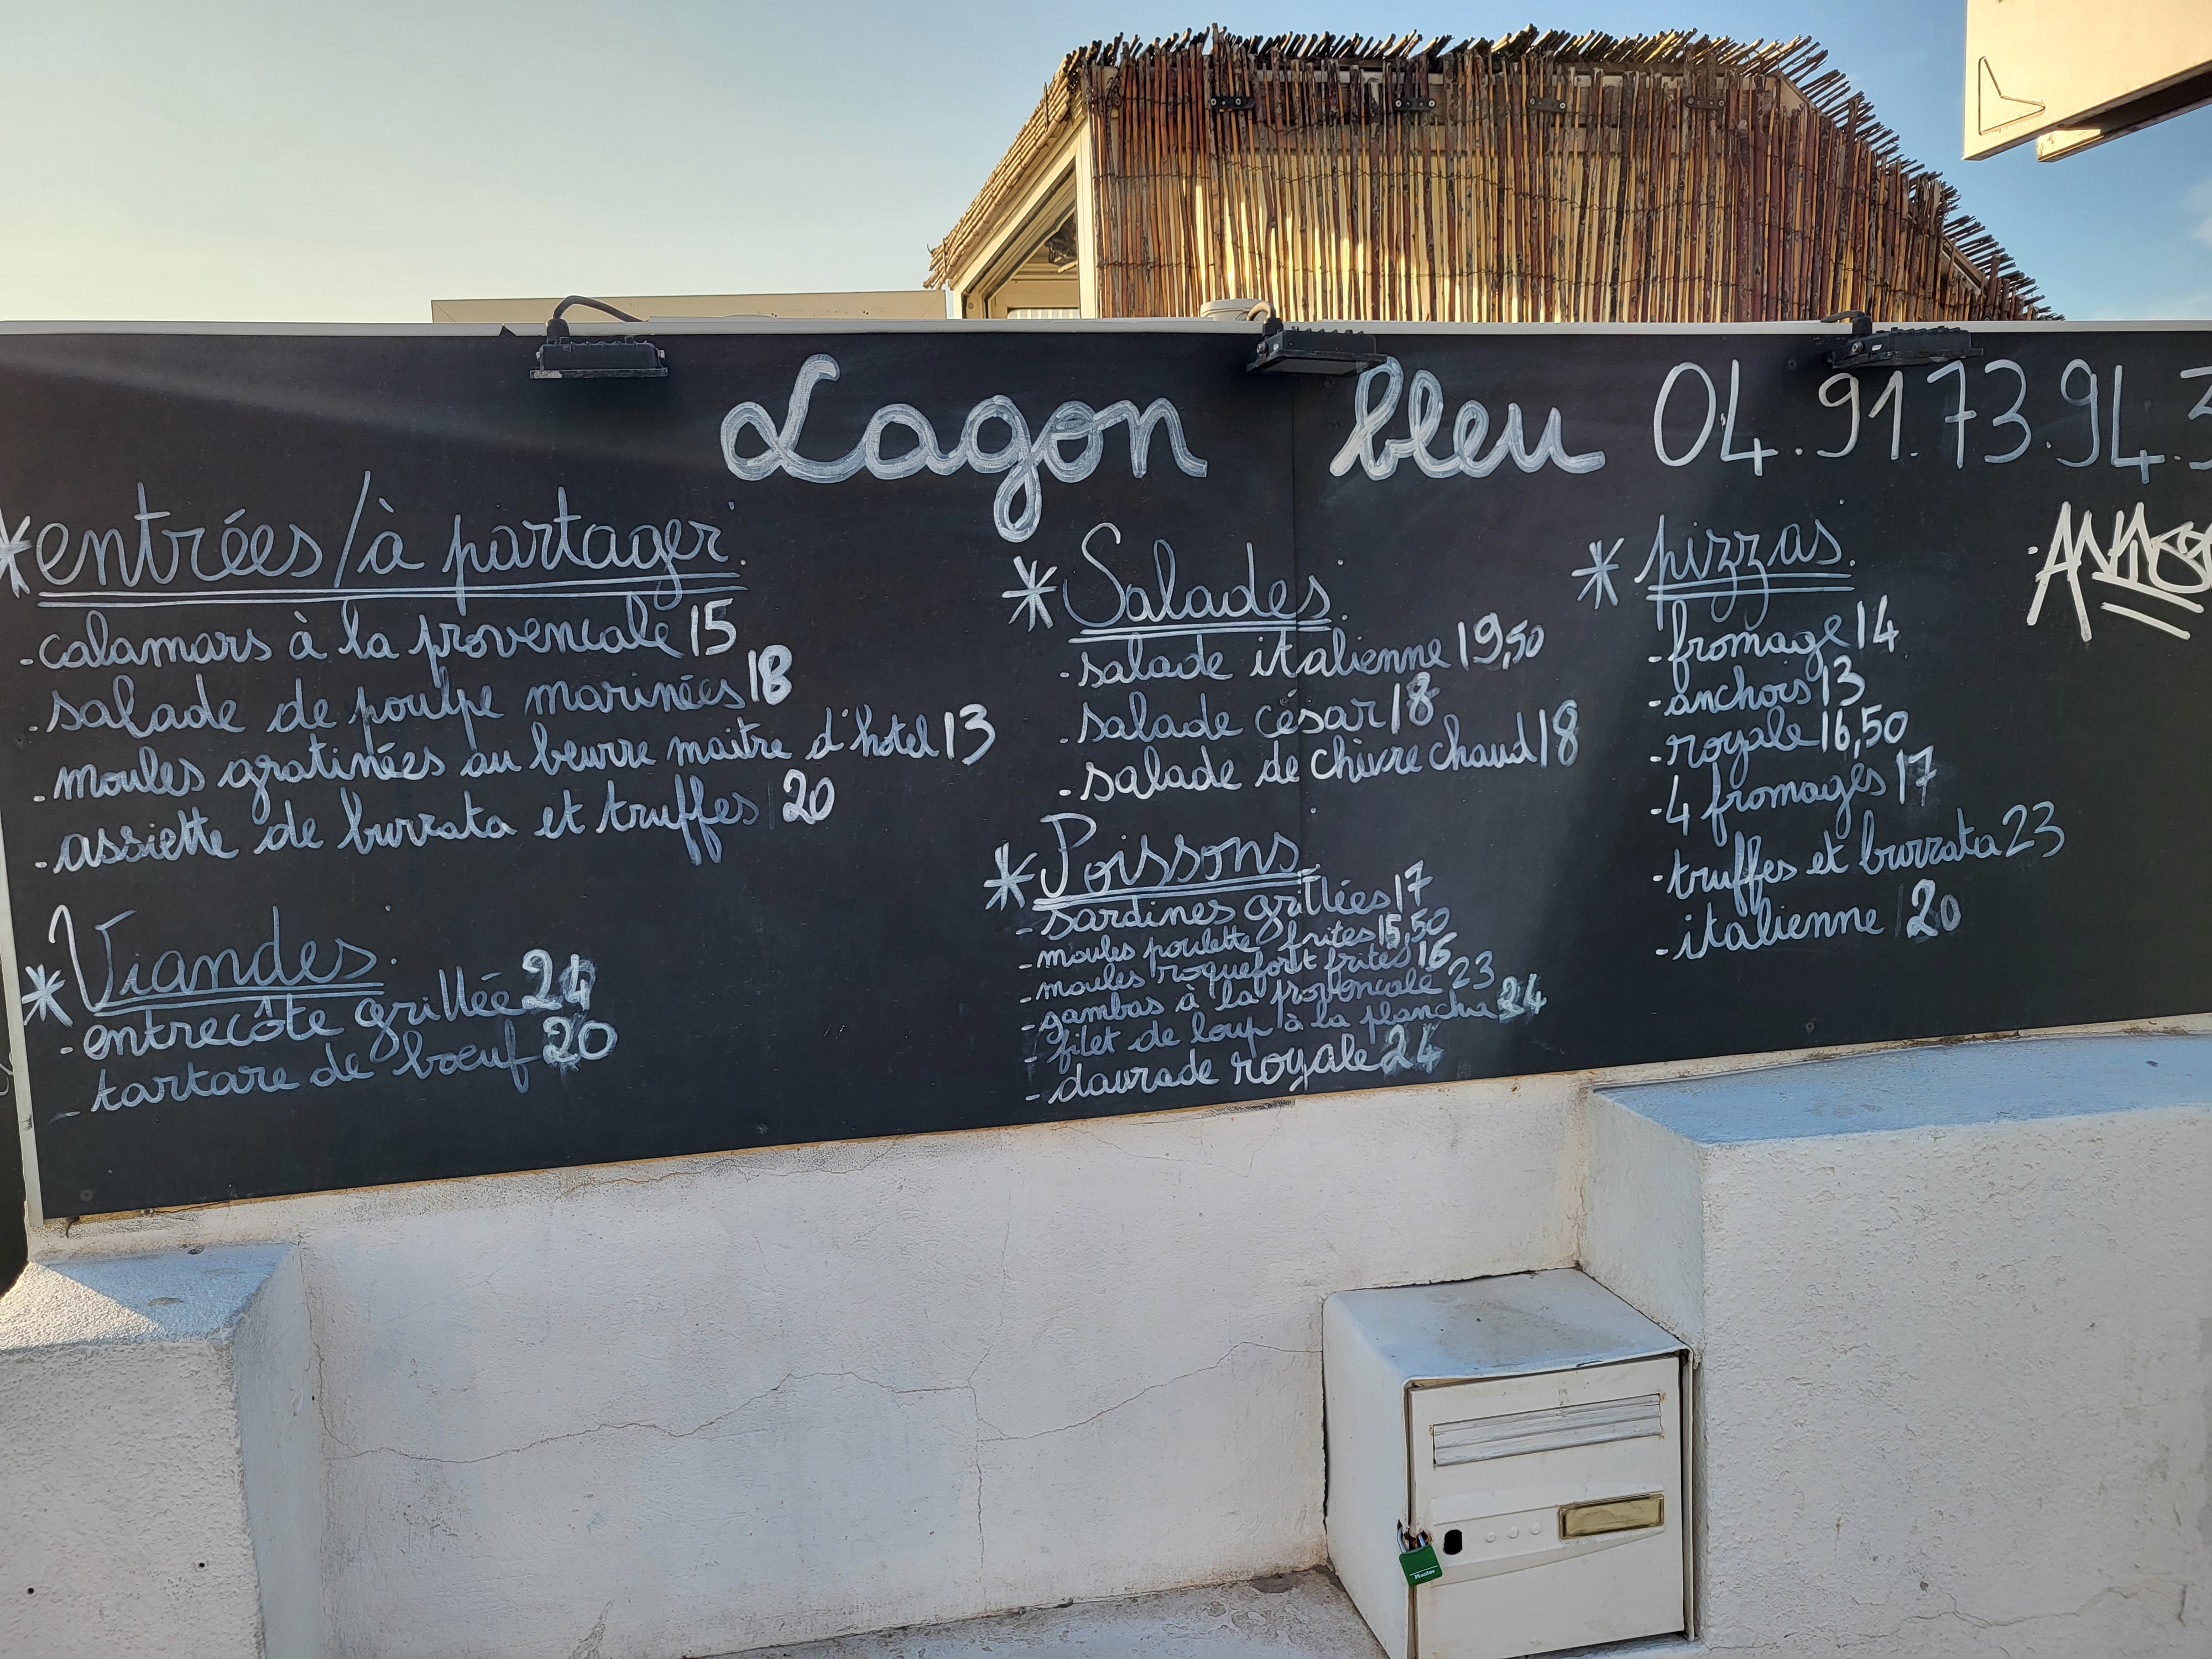 Lagon bleu 04.91.73.94.3
*entrées/à partager.
-calamars à la provencale 15
-salade de poulpe marinées 18
-moules gratinées au beurre maitre d'hotel 13
-assiette de burrata et truffes 20
*Viandes.
-entrecôte grillée 24
-tartare de boeuf 20
*Salades.
-salade italienne 19,50
-salade césar 18
-salade de chèvre chaud 18
*Poissons.
-sardines grillées 17
-moules poulette frites 15,50
-moules roquefort frites 16
-gambas à la provencale 23
-filet de loup à la plancha 24
-daurade royale 24
*pizzas.
-fromage 14
-anchois 13
-royale 16,50
-4 fromages 17
-truffes et burrata 23
-italienne 20